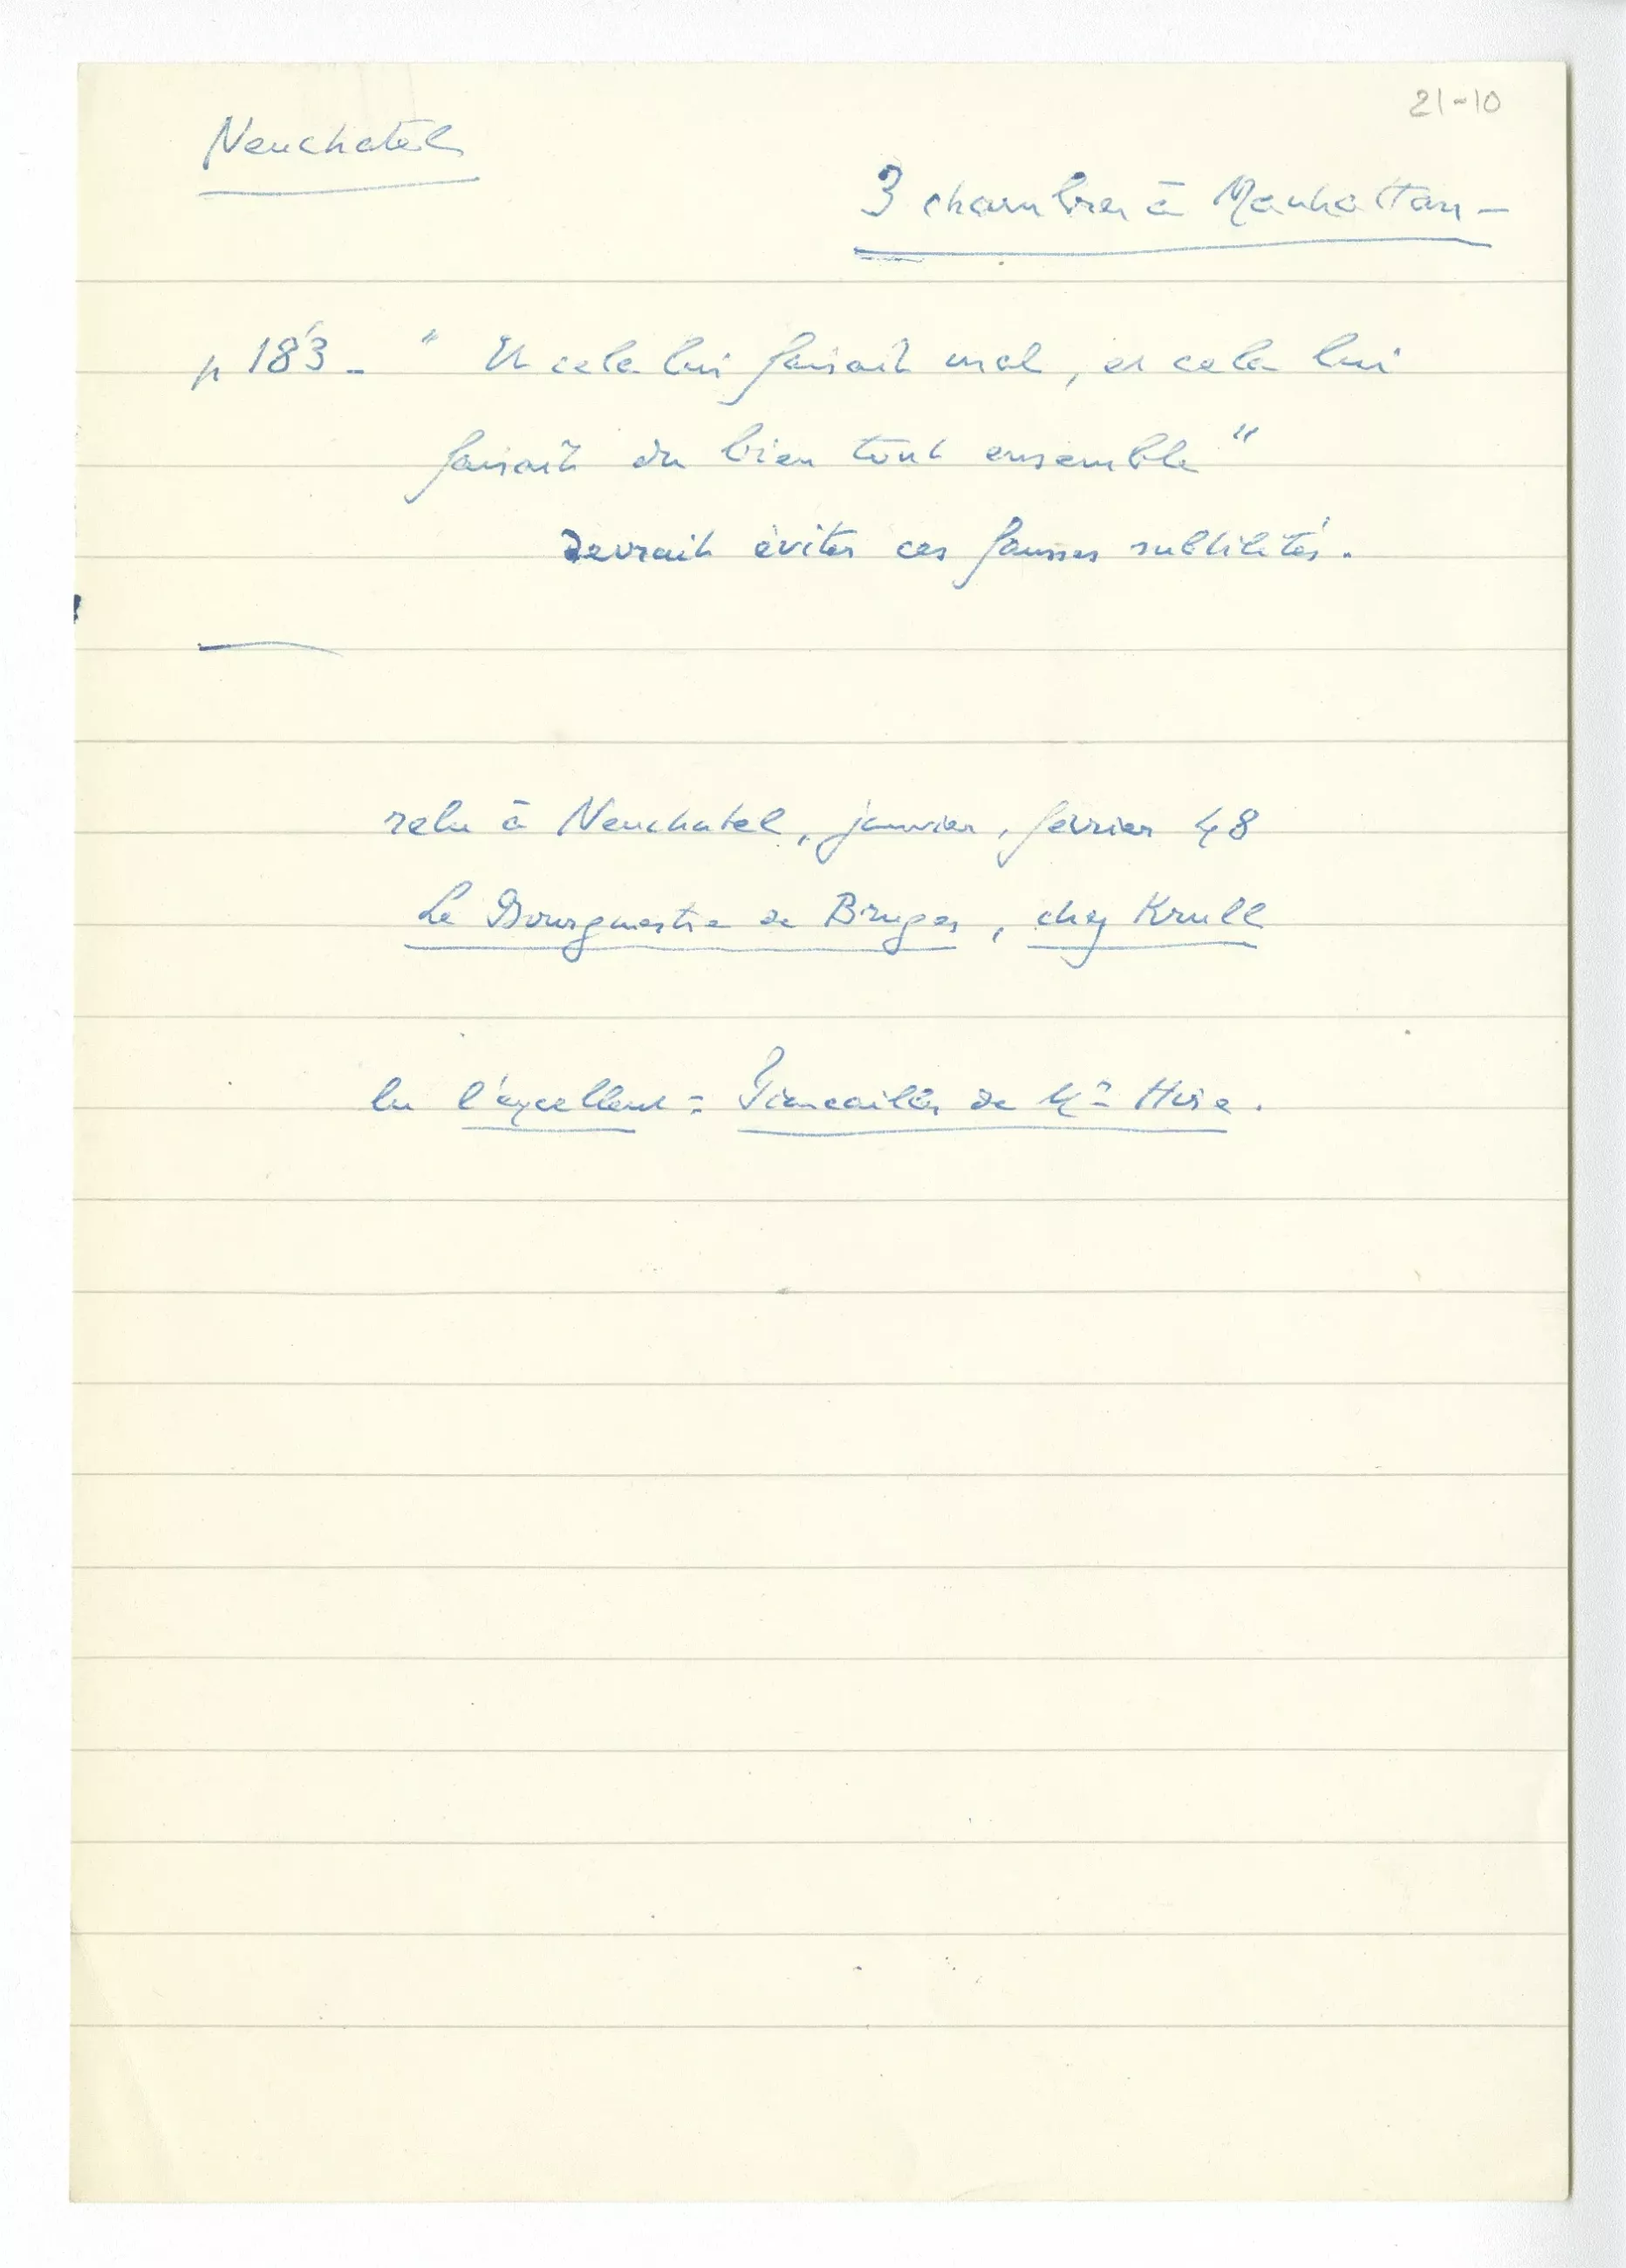 21-10
Neuchatel
3 chambres à Manhattan -
p 183 - " Et cela lui faisait mal, et cela lui
faisait du bien tout ensemble "
devrait éviter ces fausses subtilités.
relu à Neuchatel, janvier, février 48
Le Bourgmestre de Bruges, chez Krull
lu l'excellent : Fiançailles de Mr Hire.